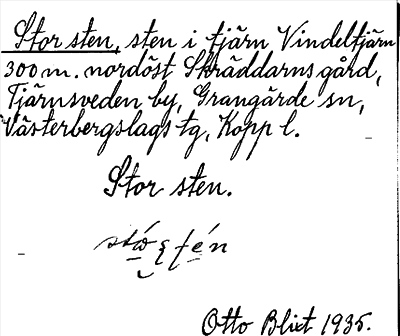 Stor sten, sten i tjärn Vindeltjärn
300 m. nordöst Skräddarns gård,
Tjärnsveden by, Grangärde sn,
Västerbergslags tg, Kopp l.
Stor sten.
Otto Blixt 1935.